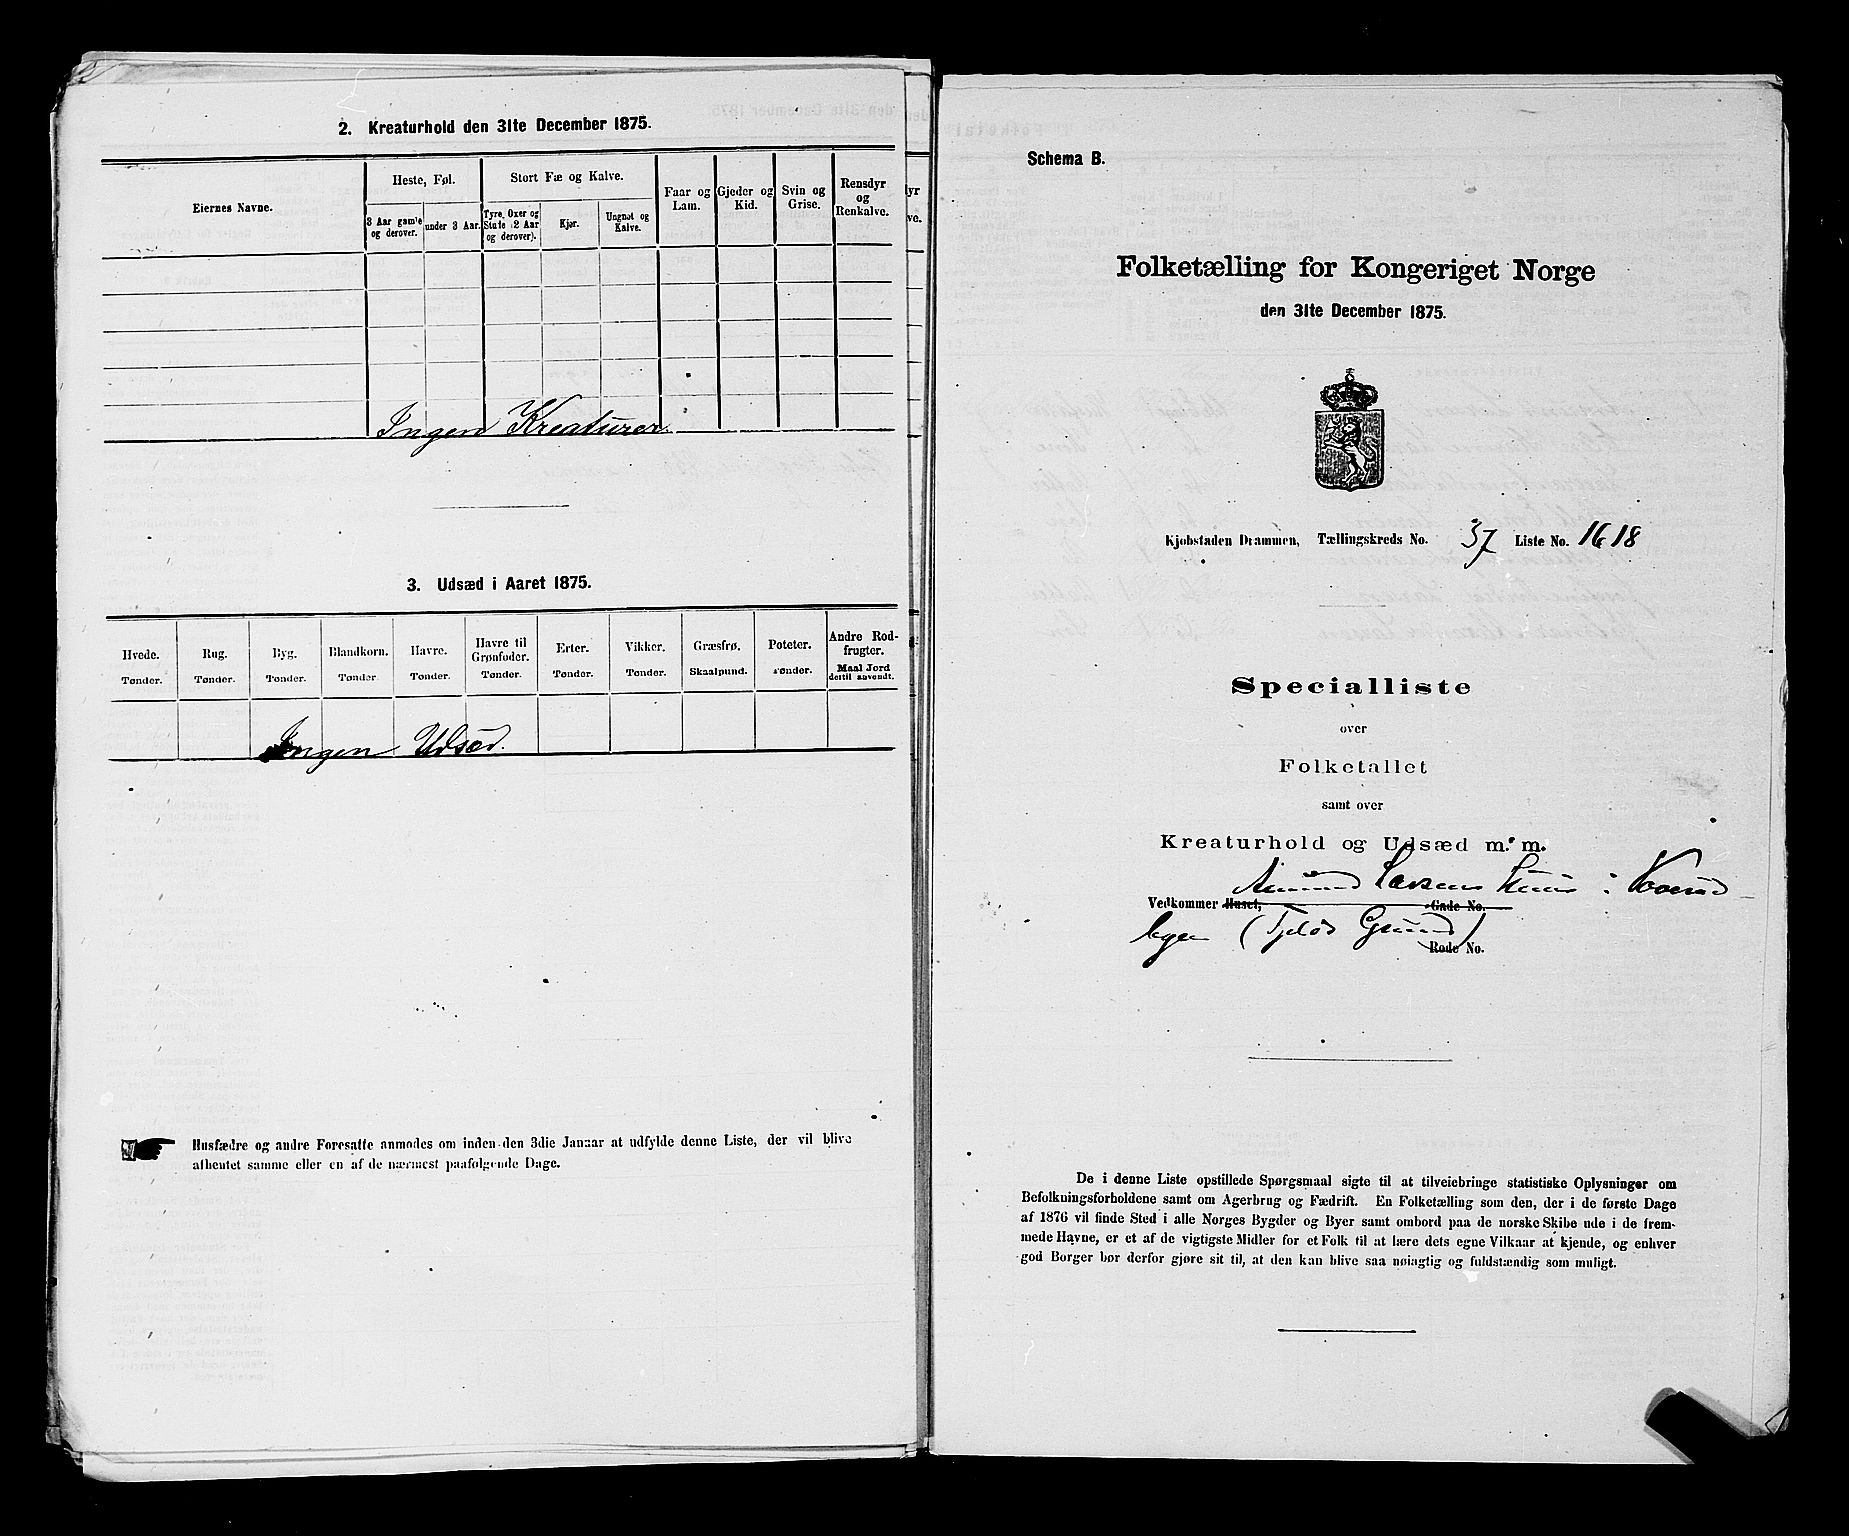 2. Kreaturhold den 31te December 1875.
Eiernes Navne.
Heste, Føl.
3 Aar gamle og derover.
under 3 Aar.
Stort Fæ og Kalve.
Tyre, Oxer og Stude (2 Aar og derover).
Kjør.
Ungnøt og Kalve.
Faar og Lam.
Gjeder og Kid.
Svin og Grise.
Rensdyr og Renkalve.
Ingen Kreaturer
3. Udsæd i Aaret 1875.
Hvede. Tønder.
Rug. Tønder.
Byg. Tønder.
Blandkorn. Tønder.
Havre. Tønder.
Havre til Grønfoder. Tønder.
Erter. Tønder.
Vikker. Tønder.
Græsfrø. Skaalpund.
Poteter. Tønder.
Andre Rodfrugter. Maal Jord dertil anvendt.
Ingen Udsæd.
Husfædre og andre Foresatte anmodes om inden den 3die Januar at udfylde denne Liste, der vil blive
afhentet samme eller en af de nærmest paafølgende Dage.
Schema B.
Folketælling for Kongeriget Norge
den 31te December 1875.
Kjøbstaden Drammen, Tællingskreds No. 37 Liste No. 16 18
Specialliste
over
Folketallet
samt over
Kreaturhold og Udsæd m. m.
Amund Larsens Huus i
Vedkommer Huset, Gade No.
byen (Grund)
Rode No.
De i denne Liste opstillede Spørgsmaal sigte til at tilveiebringe statistiske Oplysninger om
Befolkningsforholdene samt om Agerbrug og Fædrift. En Folketælling som den, der i de første Dage
af 1876 vil finde Sted i alle Norges Bygder og Byer samt ombord paa de norske Skibe ude i de frem-
mede Havne, er et af de vigtigste Midler for et Folk til at lære dets egne Vilkaar at kjende, og enhver
god Borger bør derfor gjøre sit til, at den kan blive saa nøiagtig og fuldstændig som muligt.